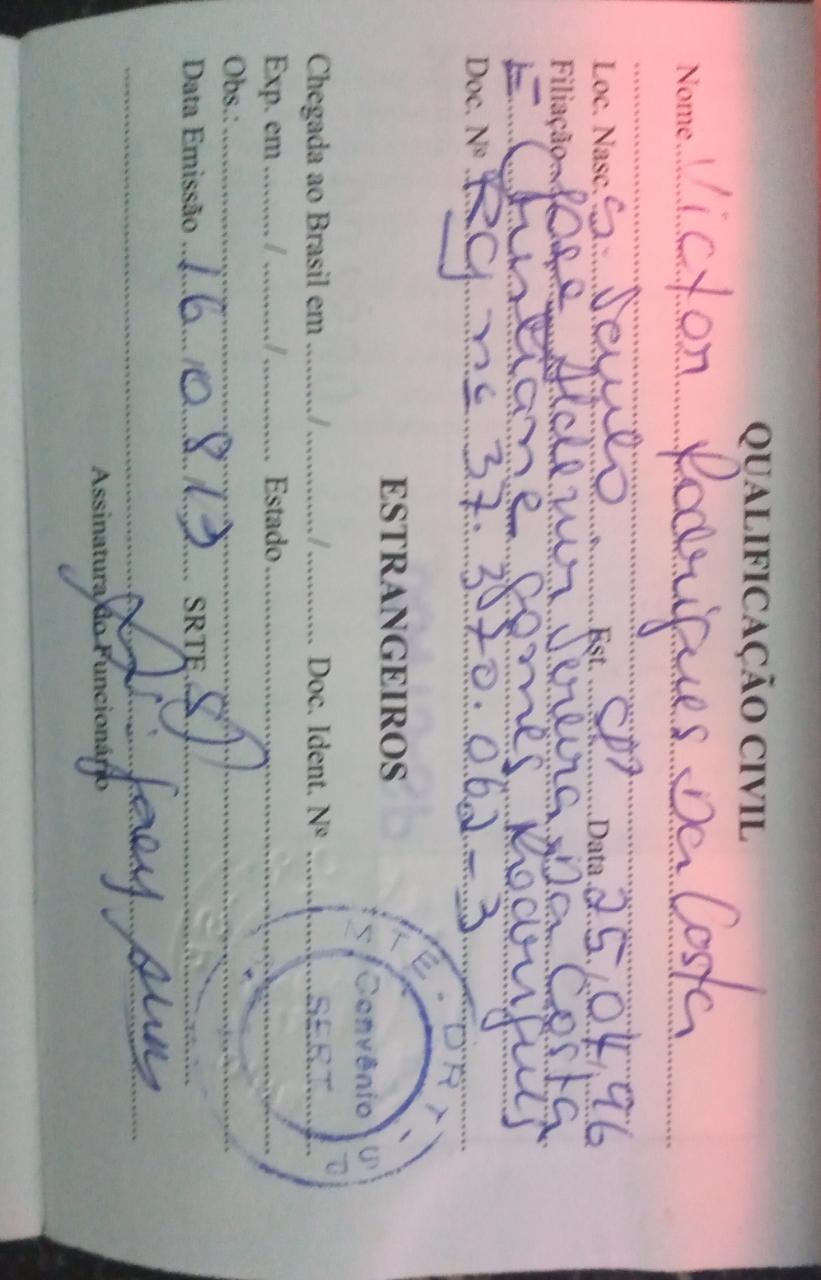 QUALIFICAÇÃO CIVIL
Nome Victor Rodrigues Da Costa
Loc. Nasc. S. Paulo. Est. SP Data 25/04/96
Filiação Jose Aldemir Pereira Da Costa
E Cristiane Gomes Rodrigues
Doc. Nº RG nº 37.370.062-3
ESTRANGEIROS
Chegada ao Brasil em ......../............/............ Doc. Ident. Nº
Exp. em ........./........../............. Estado
Obs.:
Data Emissão 16/08/13 SRTE SP
Assinatura do Funcionário
MTE - DRT - SP
Convênio
SERT